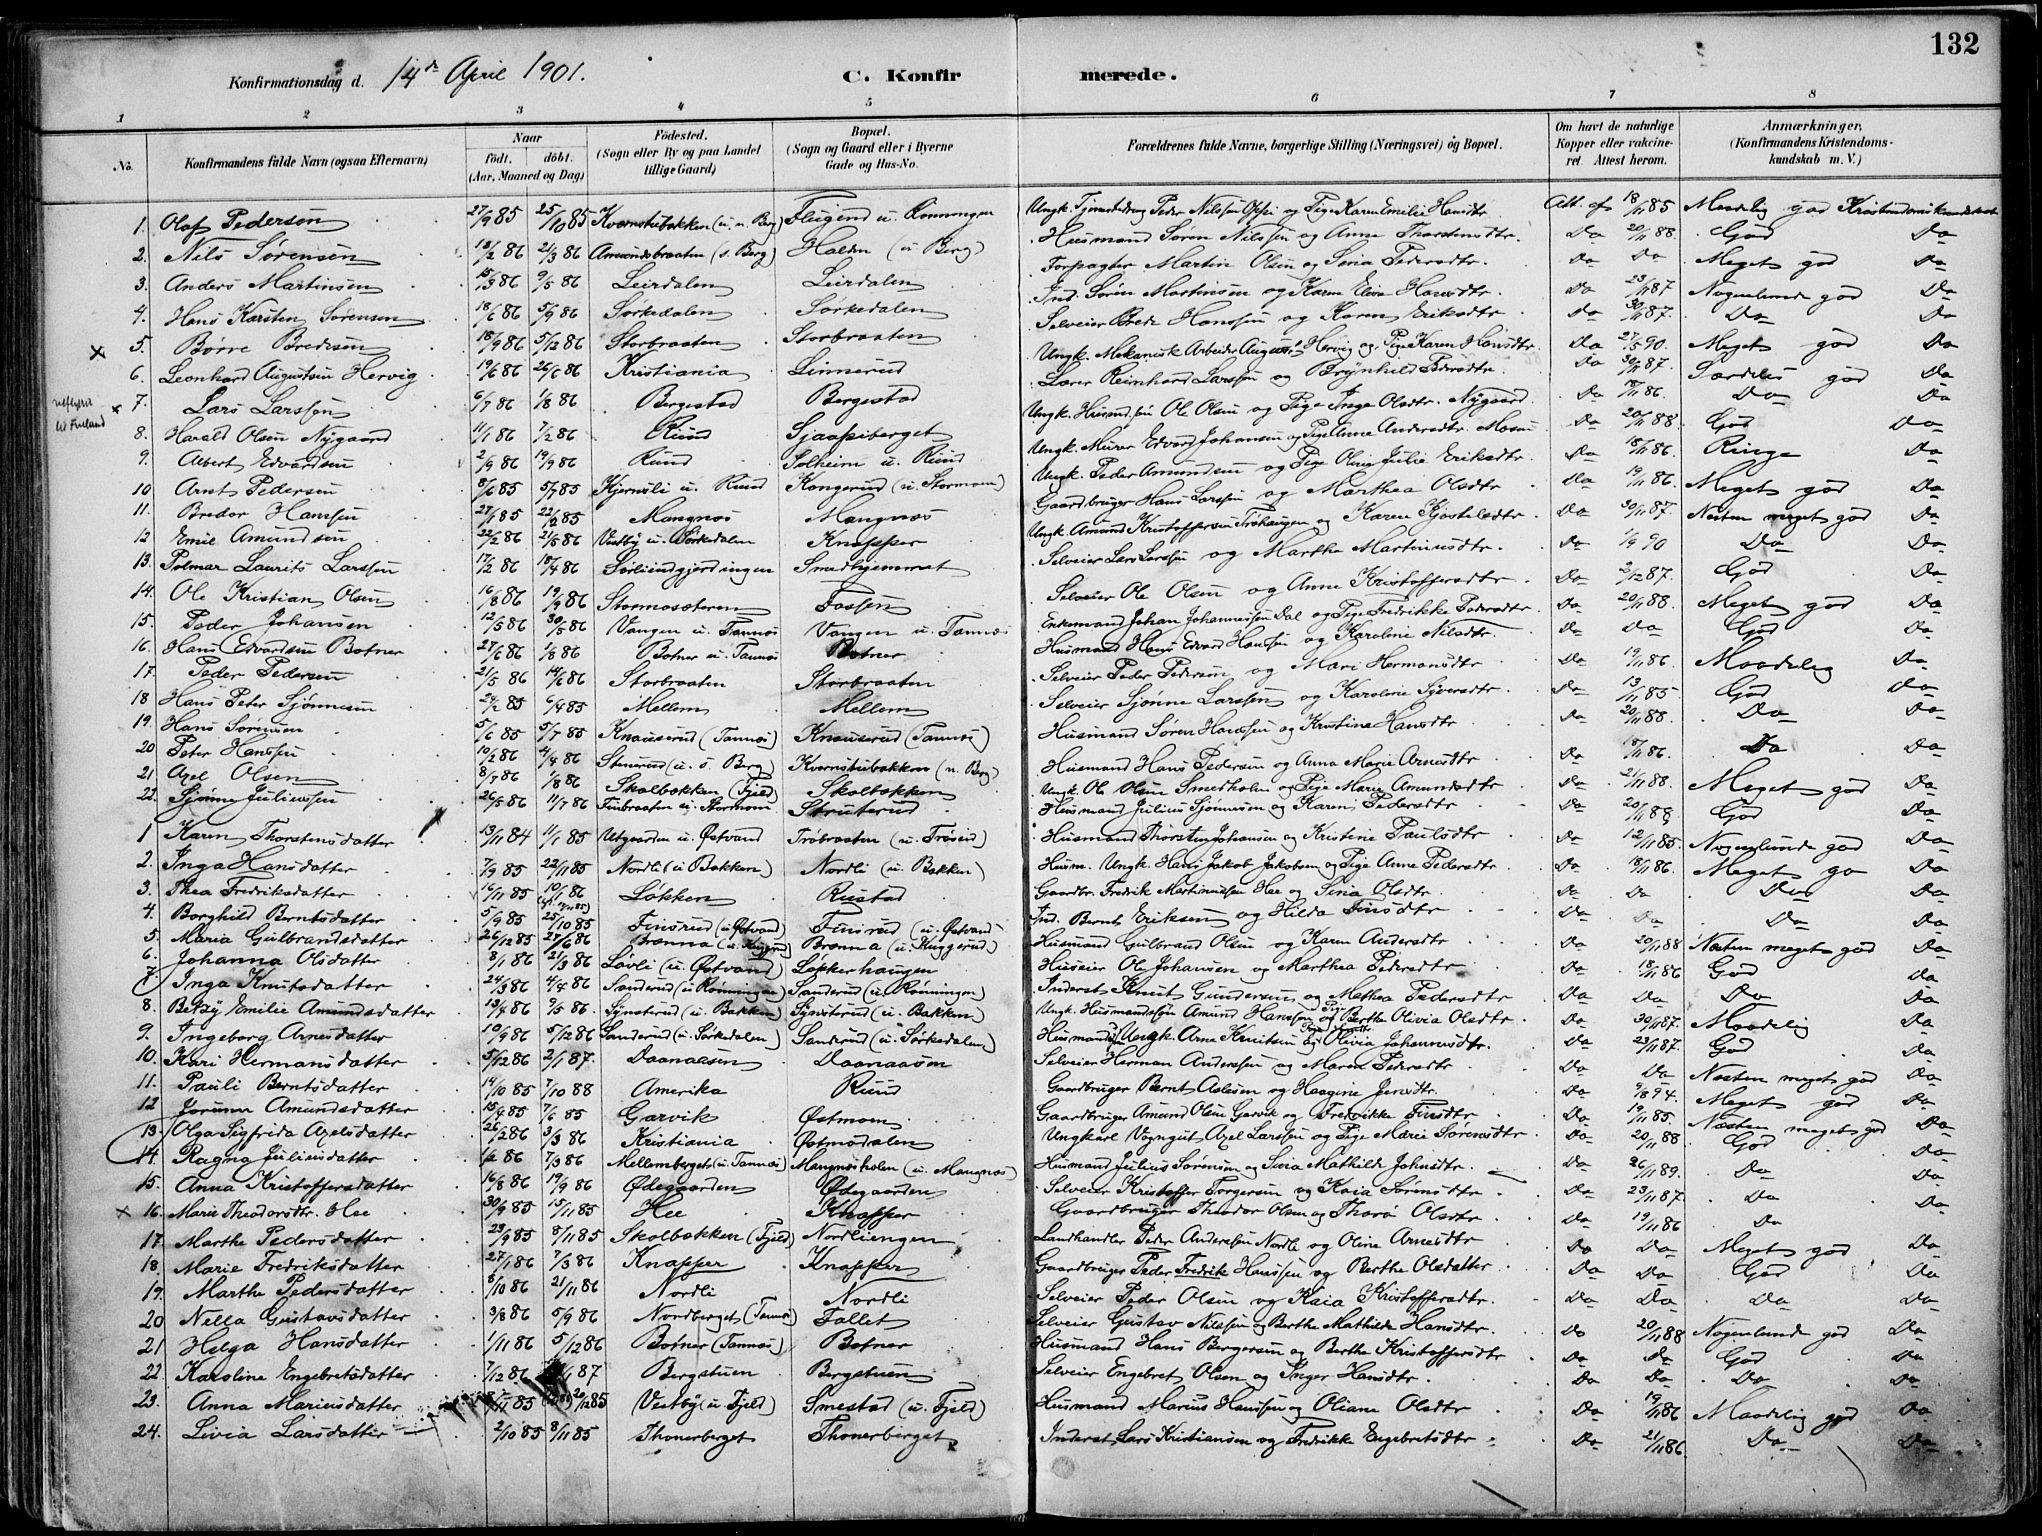 132
Konfirmationsdag d. 14de April 1901. C. Konfirmerede.
1 2 3 4 5 6 7 8
No. Konfirmandens fulde Navn (ogsaa Efternavn) Naar født. døbt. (Aar, Maaned og Dag) Fødested. (Sogn eller By og paa Landet tillige Gaard) Bopæl. (Sogn og Gaard eller i Byerne Gade og Hus-No. Forældrenes fulde Navne, borgerlige Stilling (Næringsvei) og Bopæl. Om havt de naturlige Kopper eller vakcineret. Attest herom. Anmærkninger, (Konfirmandens Kristendomskundskab m. V.)
1. Olaf Pedersen 27/9 85 25/10 85 Kvernstubakken (u. n. Berg) Flugend u. Rønningen Ungk. Peder Nilsen og Pige Karen Emilie Hansdtr. Att. af 18/11 85 Maadelig god Kristendomskundskab
2. Nils Sørensen 13/2 86 21/3 86 Amundsbraaten (s. Berg) Halden (u Berg) Husmand Søren Nilssen og Anne Thorstensdtr. Do 20/11 88. God Do
3. Anders Martinsen 15/3 86 9/5 86 Leirdalen Leirdalen Forpagter Martin Olsen og Sina Pedersdtr. Do Do Meget god Do
4. Hans Karsten Sørensen 18/6 86 5/9 86 Sørkedalen Sørkedalen Ind. Søren Martinsen og Karen Elvia Hansdtr. Do 23/11 87 Nogenlunde god Do
x 5. Børre Bredesen 18/9 86 5/12 86 Storbraaten Storbraaten Selveier Brede Hanssen og Karen Eriksdtr Do 30/11 87. Do Do
6. Leonhard Augustsen Hervig 19/6 86 26/6 86 Kristiania Linnerud Ungk. Mekanisk Arbeider August Hervig og Pige Karen Hansdtr. Do 27/5 90. Meget god Do
til Finland x 7. Lars Larssen 6/7 86 1/8 86 Bergestad Bergestad Lærer Reinhard Larssen og Brynhild Pedersdtr. Do 30/11 87. Særdeles god Do
8. Harald Olsen Nygaard 11/1 86 7/2 86 Rund Sjaapiberget Ungk. Husmd.søn Ole Olsen og Pige Inge Olsdtr. Nygaard Do 18/11 86. Do Do
9. Albert Edvardsen 2/9 86 19/9 86 Rund Solheim u. Rund Ungk. Murer Edvard Johansen og Pige Anne Andersdtr. Mosen Do 20/11 88 God Do
10 Arnt Pedersen 8/6 85 5/7 85 Kjernsli u. Rund Kongerud (u Stormoen) Ungk. Peder Amundsen og Pige Oline Julie Eriksdtr. Do 18/11 86. Ringe Do
11. Bredor Hanssen 27/1 85 22/2 85 Mangnæs Mangnæs Gaardbruger Hans Larssen og Marthea Olsdtr Do 19/11 86. Meget god Do
12 Emil Amundsen 22/2 86 21/3 86 Vestby u. Sørkedalen Knapper Ungk. Amund Kristoffersen Trøhaugen og Karen Kjostelsdtr Do 30/11 87. Næsten meget god Do
13. Polmar Laurits Larssen 17/2 86 18/4 86 Sørliendgjerdingen Smedhjemmet Selveier Lars Larssen og Marthe Martinusdtr. Do 1/9 90 Do Do
14. Ole Kristian Olsen 16/8 86 19/9 86 Stormosæteren Fossen Selveier Ole Olsen og Anne Kristoffersdtr Do 2/12 87. God Do
15. Peder Johansen 12/5 86 30/5 86 Vangen u. Tannæs Vangen u. Tannæs Enkemand Johan Johannessen Dal og Pige Fredrikke Pedersdtr. Do 20/11 88. Meget god Do
16. Hans Edvardsen Botner 27/6 86 1/8 86 Botner u. Tannæs Botner Husmand Hans Edvard Hanssen og Karoline Nilsdtr. Do Do God Do
17. Peder Pedersen 21/5 86 14/6 86 Storbraaten Storbraaten Selveier Peder Pedersen og Mari Hermansdtr Do 19/11 86. Maadelig Do
18 Hans Peter Sjønnesen 24/2 85 6/4 85 Mellem Mellem Selveier Sjønne Larssen og Karoline Syversdtr. Do 13/11 85 God Do
19. Hans Sørensen 5/6 85 5/7 85 Knauserud (Tannæs) Knauserud (Tannæs) Husmand Søren Hanssen og Kristine Hansdtr Do 20/11 88. Do Do
20 Peter Hanssen 10/2 86 4/4 86 Stenerud (u. s. Berg) Kvernstubakken (n. Berg) Husmand Hans Pedersen og Anna Marie Arnesdtr Do 18/11 86. Do Do
21 Axel Olsen 8/7 86 1/8 86 Skolbakken (Fjeld) Skolbakken Ungk. Ole Olsen Smedholm og Pige Maren Amundsdtr Do 21/11 88. Meget god Do
22. Sjønne Juliussen 26/5 86 11/7 86 Finbraaten u. Stormoen Struterud Husmand Julius Sjønnesen og Karen Pedersdtr Do 20/11 88 God Do
1 Karen Thorstensdatter 13/11 84 1/1 85 Utgaarden u. Østvand Trøbraaten (u. Trøseid) Husmand Thorsten Johansen og Kristine Paulsdtr Do 12/11 85. Nogenlunde god Do
2. Inga Hansdatter 7/9 85 22/11 85 Nordli (u Bakken) Nordli (u. Bakken) Husm. Ungk. Hans Jakob Jakobsen og Pige Anne Pedersdtr. Do 18/11 86. Meget go Do
3. Thea Fredriksdatter 16/11 85 10/1 86 Løkken Rustad Gaardbr. Fredrik Martiniussen Hee og Sina Olsdtr. Do Do Do Do
4. Borghild Berntsdatter 5/9 85 25/10 85 Finsrud (u Østvand) Finsrud (u. Østvand) Ind. Bernt Eriksen og Hilda Finsdtr Do Do Do Do
5. Maria Gulbrandsdatter 26/12 85 27/6 86 Brenna (u. Kuggerud) Brenna (u. Kuggerud) Husmand Gulbrand Olsen og Karen Andersdtr Do 20/11 88 Næsten meget god Do
6. Johanna Olsdatter 8/1 86 21/3 86 Løvli (u. Østvand) Løkkerhaugen Huseier Ole Johansen og Marthea Pedersdtr Do 18/11 86 God Do
7. Inga Knutsdatter 24/3 86 4/4 86 Sanderud (u Rønningen) Sanderud (u. Rønningen) Inderst Knut Gundersen og Mathea Pedersdtr Do Do Do Do
8. Betsy Emilie Amundsdatter 13/4 86 9/5 86. Synsterud (u. Bakken) Synsterud (u. Bakken) Ungk. Husmandssøn Amund Hanssen og Pige Berthe Olivia Olsdtr. Do 30/11 87. Maadelig Do
9. Ingeborg Arnesdatter 10/9 86 5/12 86 Sanderud (u. Sørkedalen) Sanderud (u. Sørkedalen) Husmands. Ungk. Arne Knutsen og Olivia Johannesdtr. Do 23/11 87. God Do
10. Kari Hermansdatter 5/12 86 2/1 87. Daanaasen Daanaasen Selveier Herman Anderssen og Maren Pedersdtr. Do Do Næsten meget god Do
11. Pauli Berntsdatter 14/10 85 7/10 88 Amerika Rund Gaardbruger Bernt Aslesen og Haagine Jensdtr. Do 9/8 94. Meget god Do
12 Jorunn Amundsdatter 15/4 85 7/6 85 Garvik Østmoen Gaardbruger Amund Olsen Garvik og Fredrikke Finsdtr Do 19/11 85. Næsten meget god Do
13. Olga Sigfrida Axelsdatter 26/2 86 3/3 86 Kristiania Østmodalen Ungkarl Vogngut Axel Larssen og Pige Marie Sørensdtr Do 20/11 88 God Do
14. Ragna Juliusdatter 1/2 86 7/3 86 Mellemberget (u Tannæs) Mangnesholen (u. Mangnæs) Husmand Julius Sørensen og Sivia Mathilde Johnsdtr. Do 26/11 89. Do Do
15. Anna Kristoffersdatter 16/8 86 19/9 86 Ødegaarden Ødegaarden Selveier Kristoffer Torgersen og Kaia Sørensdtr Do 23/11 87. Do Do
x 16. Marie Theodorsdtr. Hee 30/9 85 15/11 85 Hee Knapper Gaardbruger Theodor Olsen og Thora Olsdtr Do 19/11 86 Do Do
17. Marthe Pedersdatter 23/9 85 8/11 85 Skolbakken (Fjeld) Nordliengen Landhandler Peder Anderssen Nordli og Oline Arnesdtr Do Do Meget god Do
18 Marie Fredriksdatter 27/1 86 7/3 86 Knapper Knapper Gaardbruger Peder Fredrik Hanssen og Berthe Olsdatter Do Do God Do
19. Marthe Pedersdatter 8/10 86 21/11 86 Nordli Nordli Selveier Peder Olsen og Kaia Kristoffersdtr. Do Do Do Do
20 Nella Gustavsdatter 3/8 86 5/9 86 Nordberget (Tannæs) Fallet Selveier Gustav Nilssen og Berthe Mathilde Hansdtr. Do 20/11 88 Nogenlunde god Do
21 Helga Hansdatter 1/11 86 5/12 86 Botner (Tannæs) Botner Husmand Hans Bergersen og Berthe Kristoffersdtr Do Do God Do
22 Karoline Engebretsdatter 7/12 86 87 Bergstuen Bergstuen Selveier Engebret Olsen og Inger Hansdtr. Do Do Do Do
23. Anna Mariusdatter 11 85 20/12 85 Vestby (u Fjeld) Smestad (u. Fjeld) Husmand Marius Hanssen og Oliane Olsdtr Do 19/11 86 Maadelig god Do
24. Livia Larsdatter 2/10 85 8/11 85 Thonerberget Thonerberget Inderst Lars Kristiansen og Fredrikke Engebretsdtr Do 21/11 86. Do Do